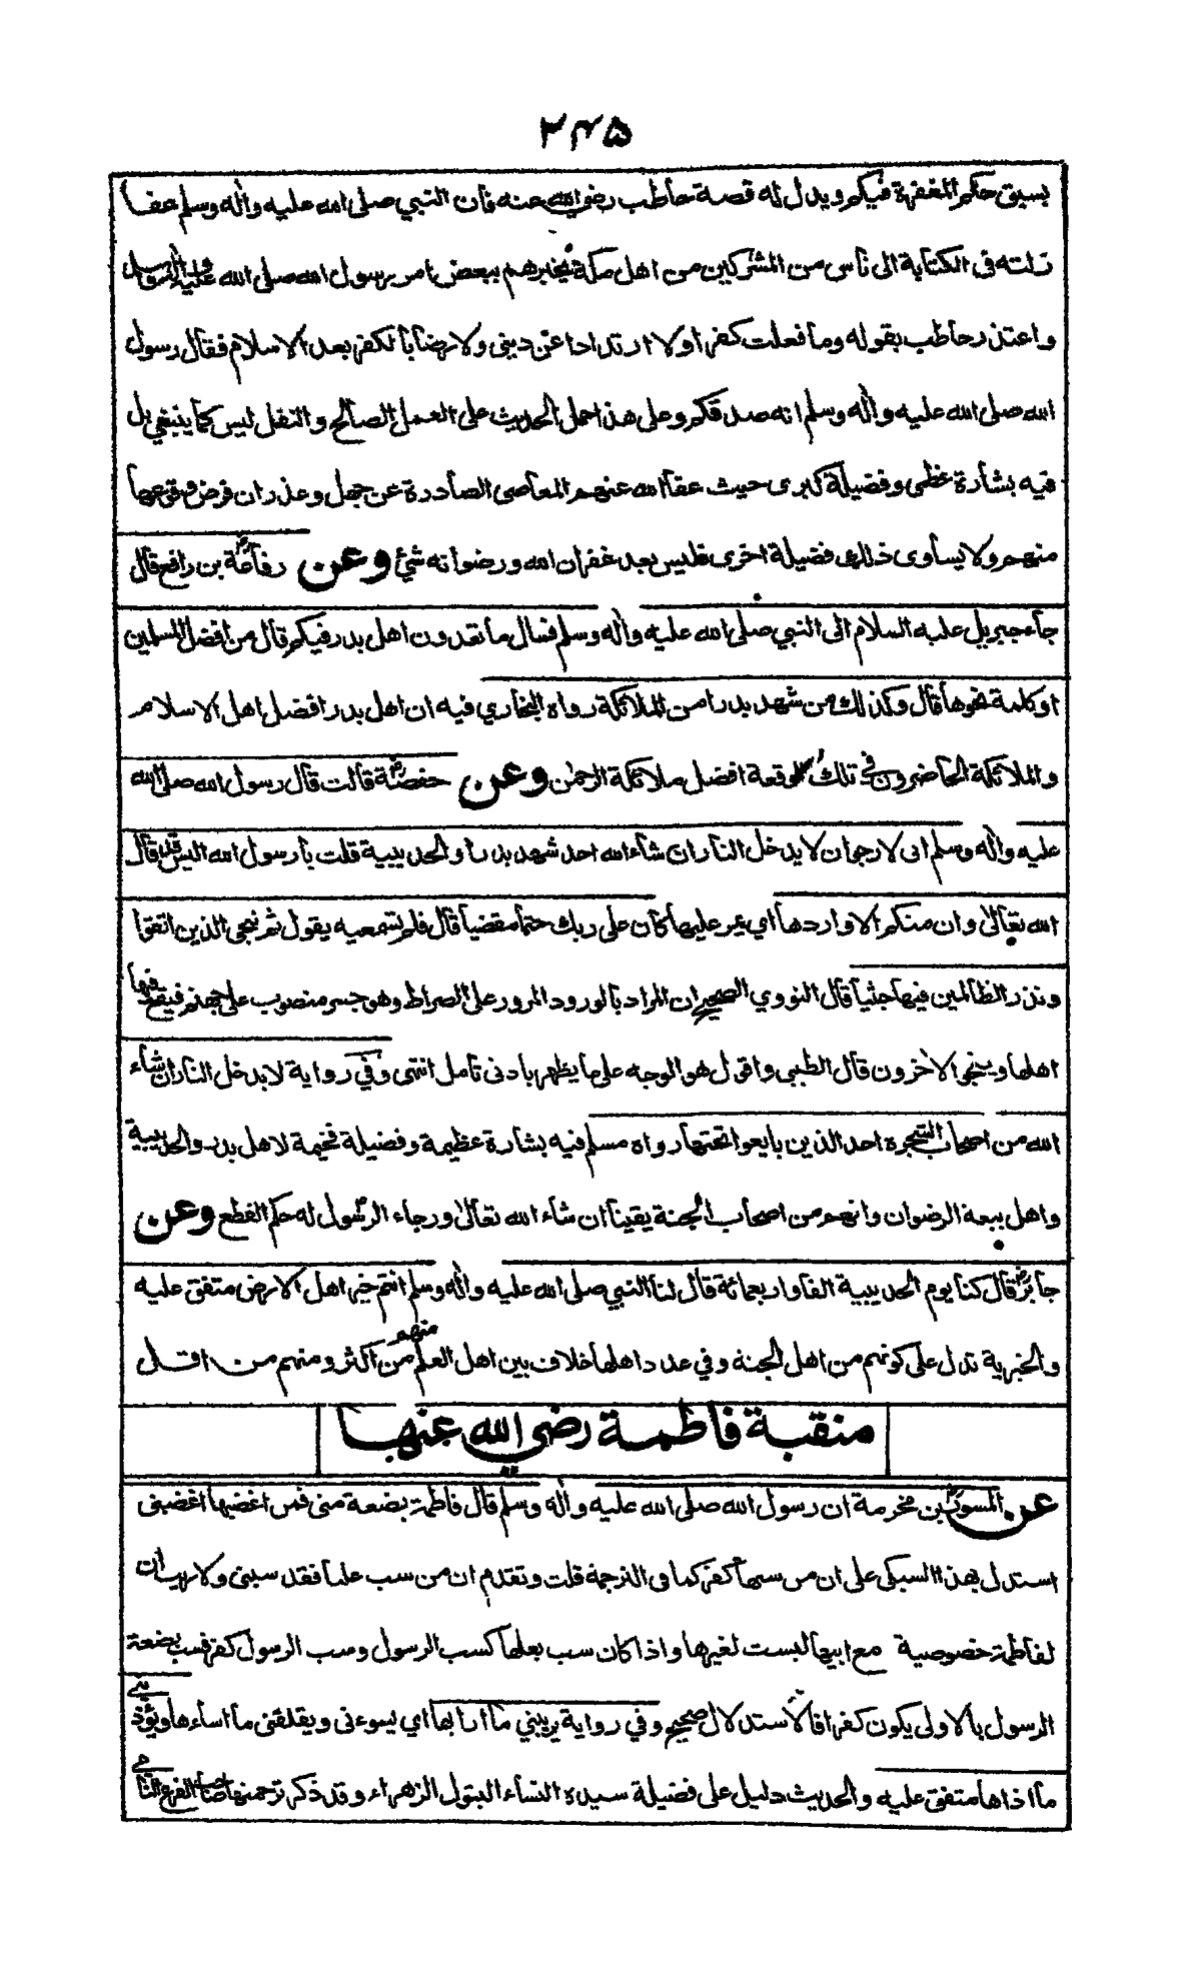 ٢٤٥
بسبق حكم المغفرة فيكم ويدل له قصة حاطب رضي الله عنه فان النبي صلى الله عليه واله وسلم عفا
زلته فى الكتابة الى ناس من المشركين من اهل مكة يخبرهم ببعض امر رسول الله صلى الله عليه واله وسلم
واعتذر حاطب بقوله وما فعلت كفرا ولا ارتدادا عن دينى ولا رضا بالكفر بعد الاسلام فقال رسول
الله صلى الله عليه واله وسلم انه صدقكم وعلى هذا حمل الحديث على العمل الصالح والنفل ليس كما ينبغي بل
فيه بشارة عظمى وفضيلة كبرى حيث عفا الله عنهم المعاصى الصادرة عن جهل وعذر ان فرض وقوعها
منهم ولا يساوى ذلك فضيلة اخرى فليس بعد غفران الله ورضوانه شئ وعن رفاعة بن رافع قال
جاء جبريل عليه السلام الى النبي صلى الله عليه واله وسلم فسال ما تعدون اهل بدر فيكم قال من افضل المسلمين
او كلمة نحوها قال وكذلك من شهد بدرا من الملائكة رواه البخاري فيه ان اهل بدر افضل اهل الاسلام
والملائكة الحاضرون في تلك الوقعة افضل ملائكة الرحمن وعن حفصة قالت قال رسول الله صلى الله
عليه واله وسلم انى لارجو ان لا يدخل النار ان شاء الله احد شهد بدرا والحديبية قلت يا رسول الله اليس قد قال
الله تعالى وان منكم الا واردها اي يمر عليها كان على ربك حتما مقضيا قال فلم تسمعيه يقول ثم ننجى الذين اتقوا
ونذر الظالمين فيها جثيا قال النووي الصحيح ان المراد بالورود المرور على الصراط وهو جسر منصوب على جهنم فيقع فيها
اهلها وينجى الاخرون قال الطيبى واقول هو الوجه على ما يظهر بادنى تامل انتهى وفي رواية لا يدخل النار ان شاء
الله من اصحاب الشجرة احد الذين بايعوا تحتها رواه مسلم فيه بشارة عظيمة وفضيلة فخيمة لاهل بدر والحديبية
واهل بيعة الرضوان وانهم من اصحاب الجنة يقينا ان شاء الله تعالى ورجاء الرسول له حكم القطع وعن
جابر قال كنا يوم الحديبية الفا واربعمائة قال لنا النبي صلى الله عليه واله وسلم انتم خير اهل الارض متفق عليه
والخيرية تدل على كونهم من اهل الجنة وفي عدد اهلها خلاف بين اهل العلم منهم من اكثر ومنهم من اقل
منقبة فاطمة رضي الله عنها
عن المسور بن مخرمة ان رسول الله صلى الله عليه واله وسلم قال فاطمة بضعة منى فمن اغضبها اغضبنى
استدل بهذا السبكى على ان من سبها كفر كما فى الترجمة قلت وتقدم ان من سب عليا فقد سبنى ولا ريب ان
لفاطمة خصوصية مع ابيها ليست لغيرها واذا كان سب بعلها كسب الرسول وسب الرسول كفر فسب بضعة
الرسول بالاولى يكون كفرا فالاستدلال صحيح وفي رواية يريبني ما ارابها اي يسوءنى ويقلقنى ما اساءها ويؤذينى
ما اذاها متفق عليه والحديث دليل على فضيلة سيدة النساء البتول الزهراء وقد ذكر ترجمتها صاحب الفرع النامى